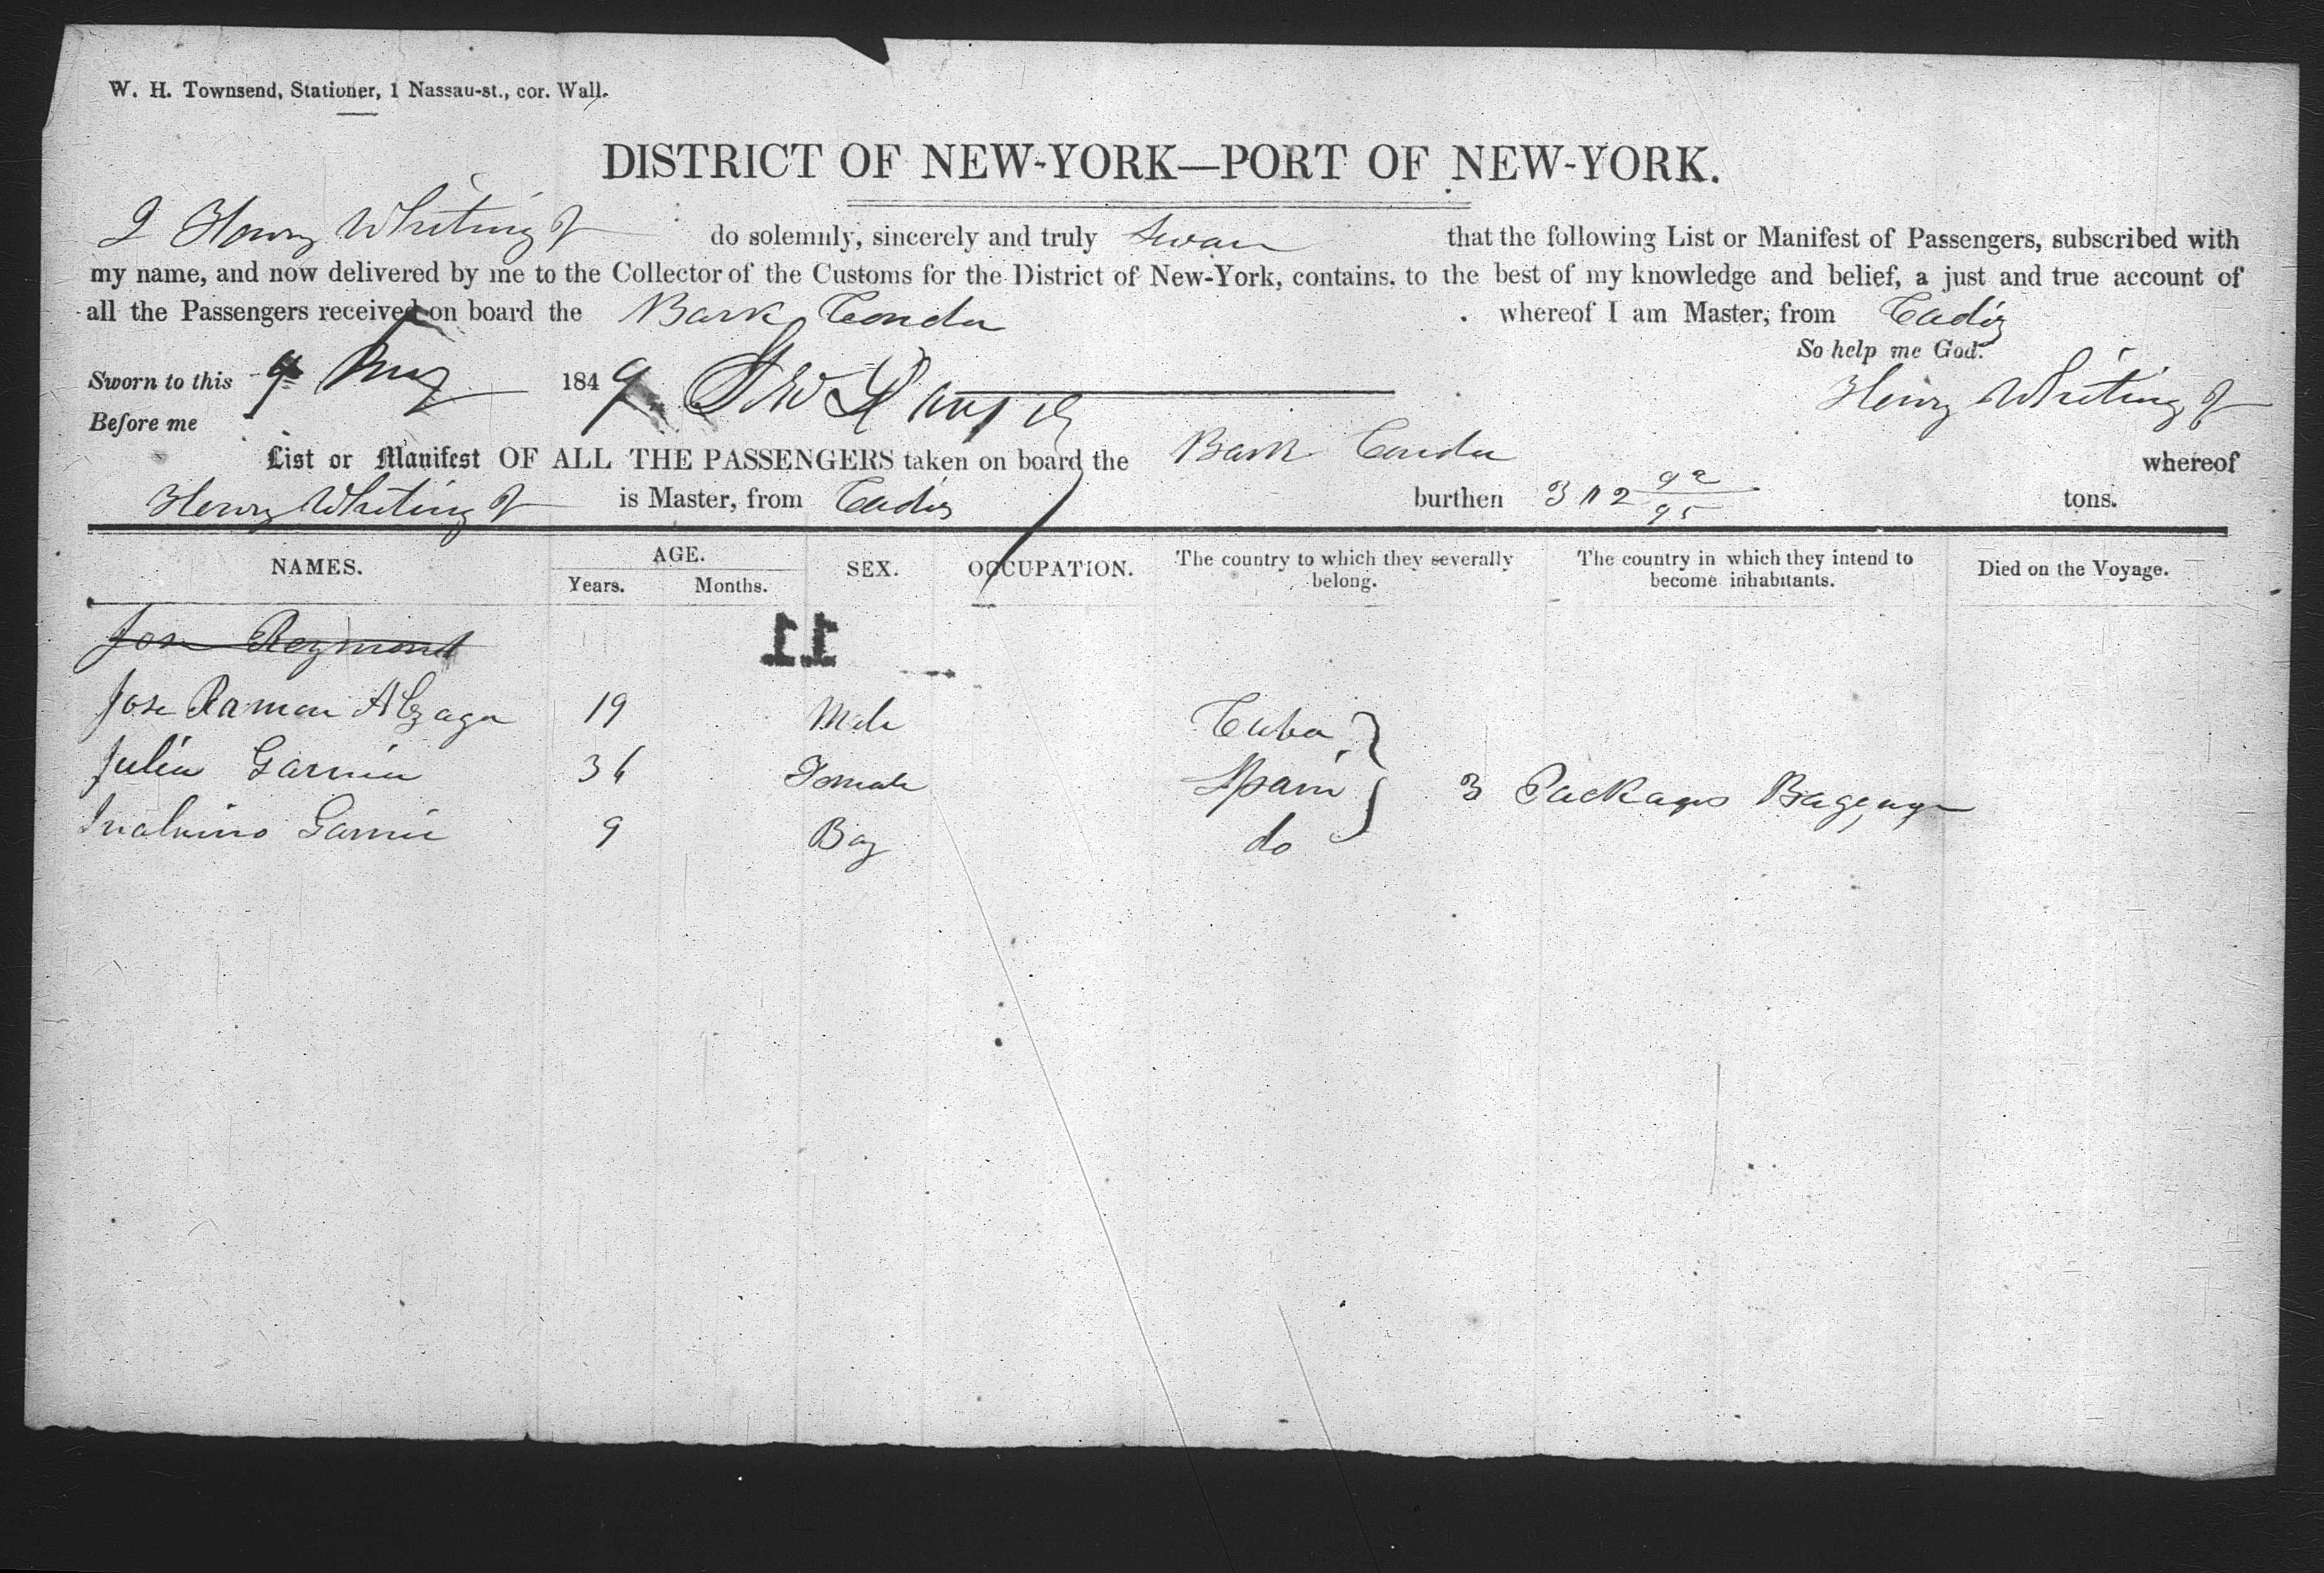 W. H. Townsend, Stationer, 1 Nassau-st., cor. Wall.
DISTRICT OF NEW-YORK—PORT OF NEW-YORK.
I Henry Whiting Jr do solemnly, sincerely and truly Swear that the following List or Manifest of Passengers, subscribed with
my name, and now delivered by me to the Collector of the Customs for the District of New-York, contains, to the best of my knowledge and belief, a just and true account of
all the Passengers received on board the Bark Condor whereof I am Master, from Cadiz
So help me God.
Sworn to this 9 1849 Henry Whiting Jr
Before me
List or Manifest OF ALL THE PASSENGERS taken on board the Bark Condor whereof
Henry Whiting Jr is Master, from Cadiz burthen 312 92/95 tons.
NAMES. AGE. SEX. OCCUPATION. The country to which they severally belong. The country in which they intend to become inhabitants. Died on the Voyage.
Years. Months.
Jose Reymond
11
Jose Ramon Alzaga 19 Male Cuba
Julia 36 Female Spain 3 Packages Baggage
9 Boy do